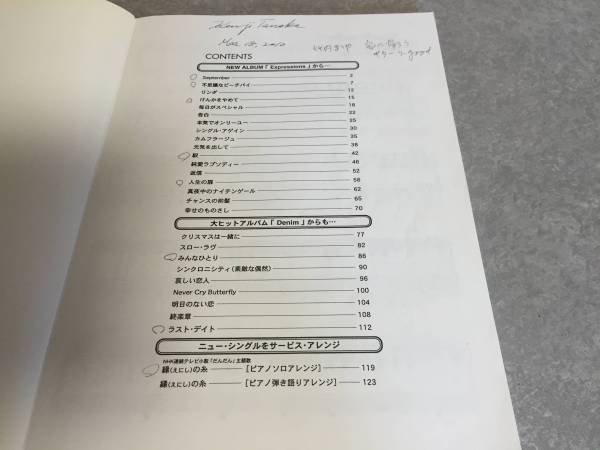 Kenji Tanaka
Mar 18, 2010
CONTENTS
NEW ALBUM「Expressions」から…
September 2
不思議なピーチパイ 7
リンダ 12
けんかをやめて 15
毎日がスペシャル 18
告白 22
本気でオンリーユー 25
シングル・アゲイン 30
カムフラージュ 35
元気を出して 38
駅 42
純愛ラプソディー 48
返信 52
人生の扉 58
真夜中のナイチンゲール 62
チャンスの前髪 65
幸せのものさし 70
大ヒットアルバム「Denim」からも…
クリスマスは一緒に 77
スロー・ラヴ 82
みんなひとり 86
シンクロニシティ（素敵な偶然） 90
哀しい恋人 96
Never Cry Butterfly 100
明日のない恋 104
終楽章 108
ラスト・デイト 112
ニュー・シングルをサービス・アレンジ
NHK連続テレビ小説「だんだん」主題歌
縁（えにし）の糸 ［ピアノソロアレンジ］ 119
縁（えにし）の糸 ［ピアノ弾き語りアレンジ］ 123